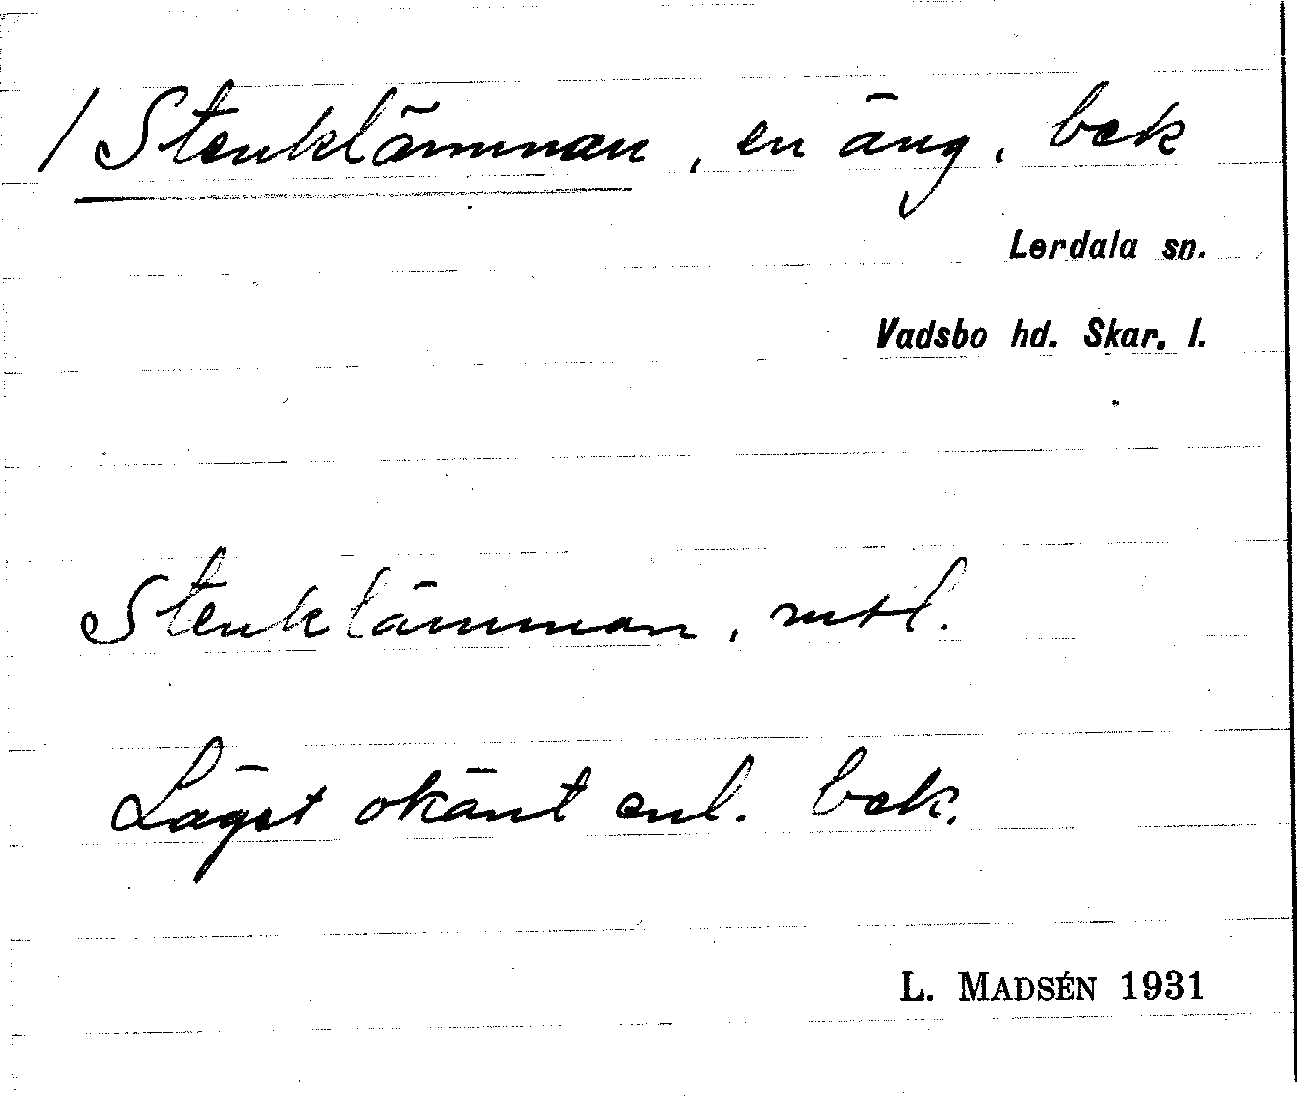 / Stenklämman, en äng, bek
Lerdala sn.
Vadsbo hd. Skar. l.
Stenklämman, mtl.
Läget okänt enl. bek.
L. MADSÉN 1931